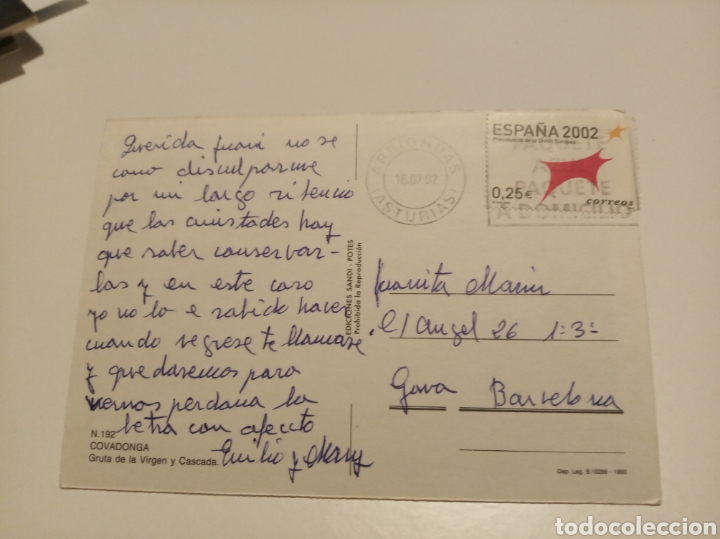 Querida Juani no se
como disculparme
por mi largo silencio
que las amistades hay
que saber conservar-
las y en este caso
yo no lo e sabido hacer
cuando regrese te llamare
y quedaremos para
vernos perdana la
letra con afecto
Emilio y Mary
N.192
COVADONGA
Gruta de la Virgen y Cascada.
EDICIONES SANDI - POTES
Prohibida la Reproducción
ARRIONDAS
16.07.02
(ASTURIAS)
PAQUETE
AZUL
PAQUETE
A DOMICILIO
ESPAÑA 2002
Presidencia de la Unión Europea
0,25€
correos
Juanita Marin
C/ Angel 26 1-3-
Gava Barcelona
Dep. Leg. B.10266 - 1993
todocoleccion